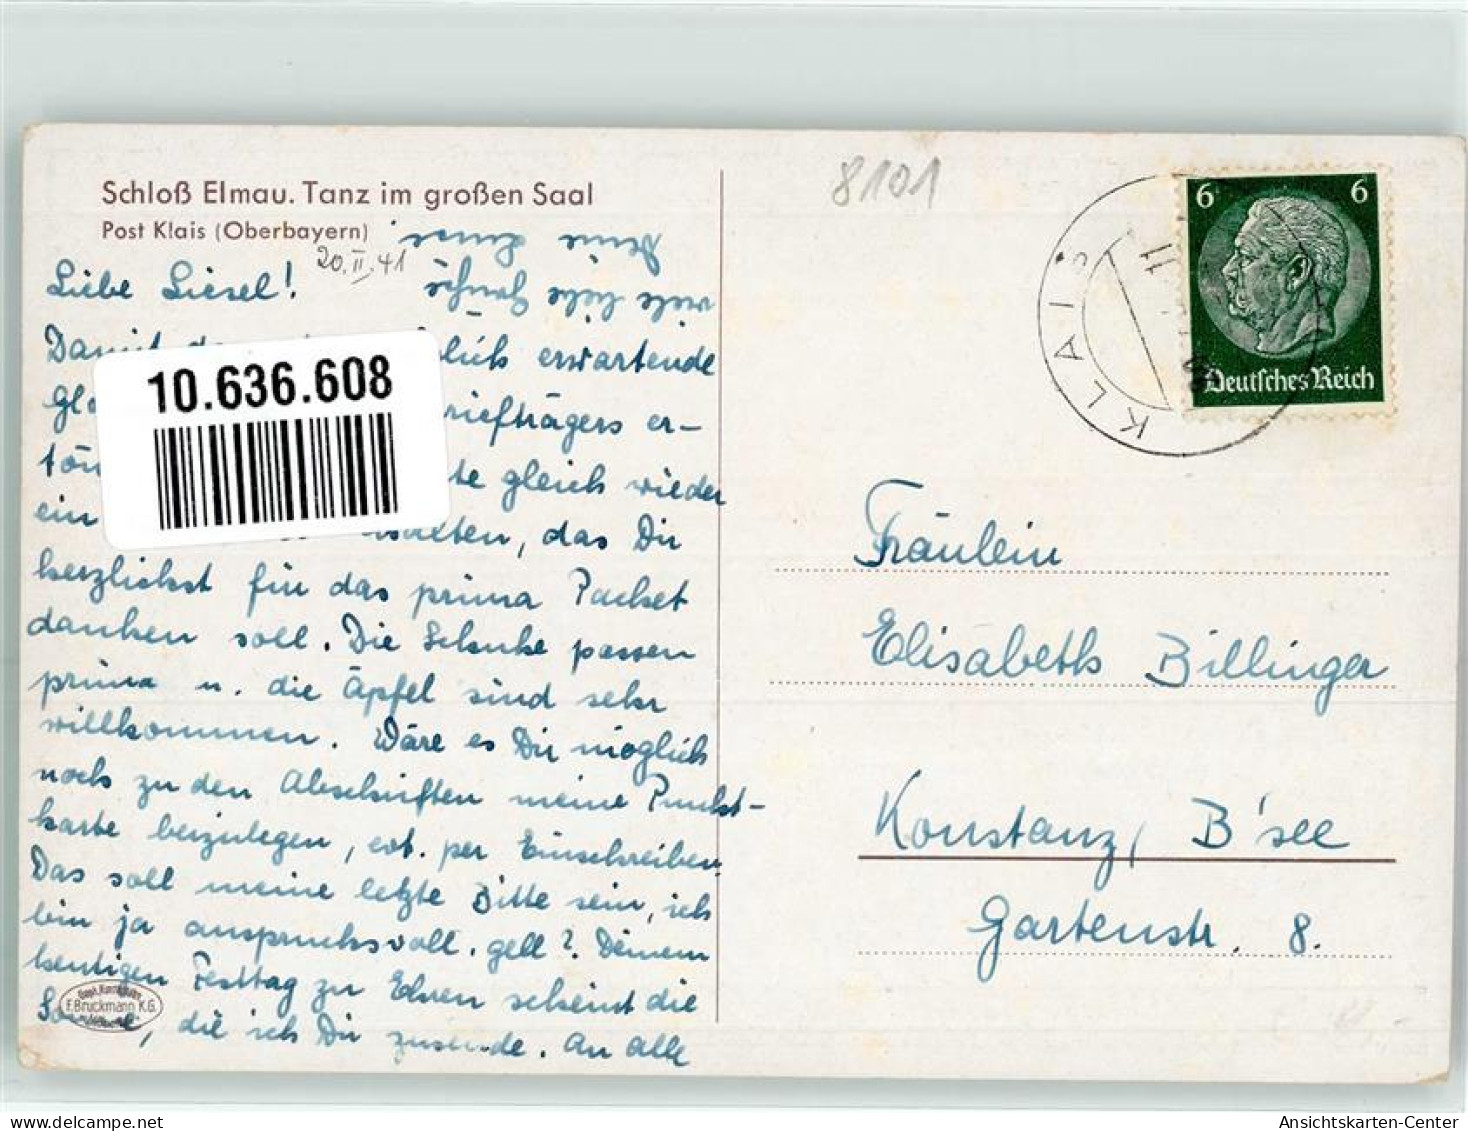 Schloß Elmau. Tanz im großen Saal
Post Klais (Oberbayern)
20.II.41
Liebe Liesel!
Damit erwartende
10.636.608
riefträgers er-
tön te gleich wieder
ein alten, das Dir
herzlichst für das prima Packet
danken soll. Die Schuhe passen
prima u. die Äpfel sind sehr
willkommen. Wäre es Dir möglich
noch zu den Abschriften meine Punkt-
karte beizulegen, evt. per Einschreiben.
Das soll meine letzte Bitte sein, ich
bin ja anspruchsvoll, gell? Deinem
heutigen Festtag zu Ehren scheint die
Sonne, die ich Dir zusende. An alle
viele liebe Grüße
Deine
F. Bruckmann K.G.
8101
KLAIS
6 6
Deutsches Reich
Fräulein
Elisabeth Billinger
Konstanz, B'see
Gartenstr. 8.
Ansichtskarten-Center